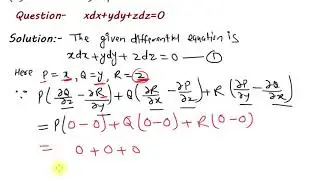 Question- xdx+ydy+zdz=0
Solution:- The given differential equation is
xdx+ydy+zdz=0 —①
Here P=x, Q=y, R=z
∵ P(∂Q/∂z - ∂R/∂y)+Q(∂R/∂x - ∂P/∂z)+R(∂P/∂y - ∂Q/∂x)
= P(0-0)+Q(0-0)+R(0-0)
= 0+0+0